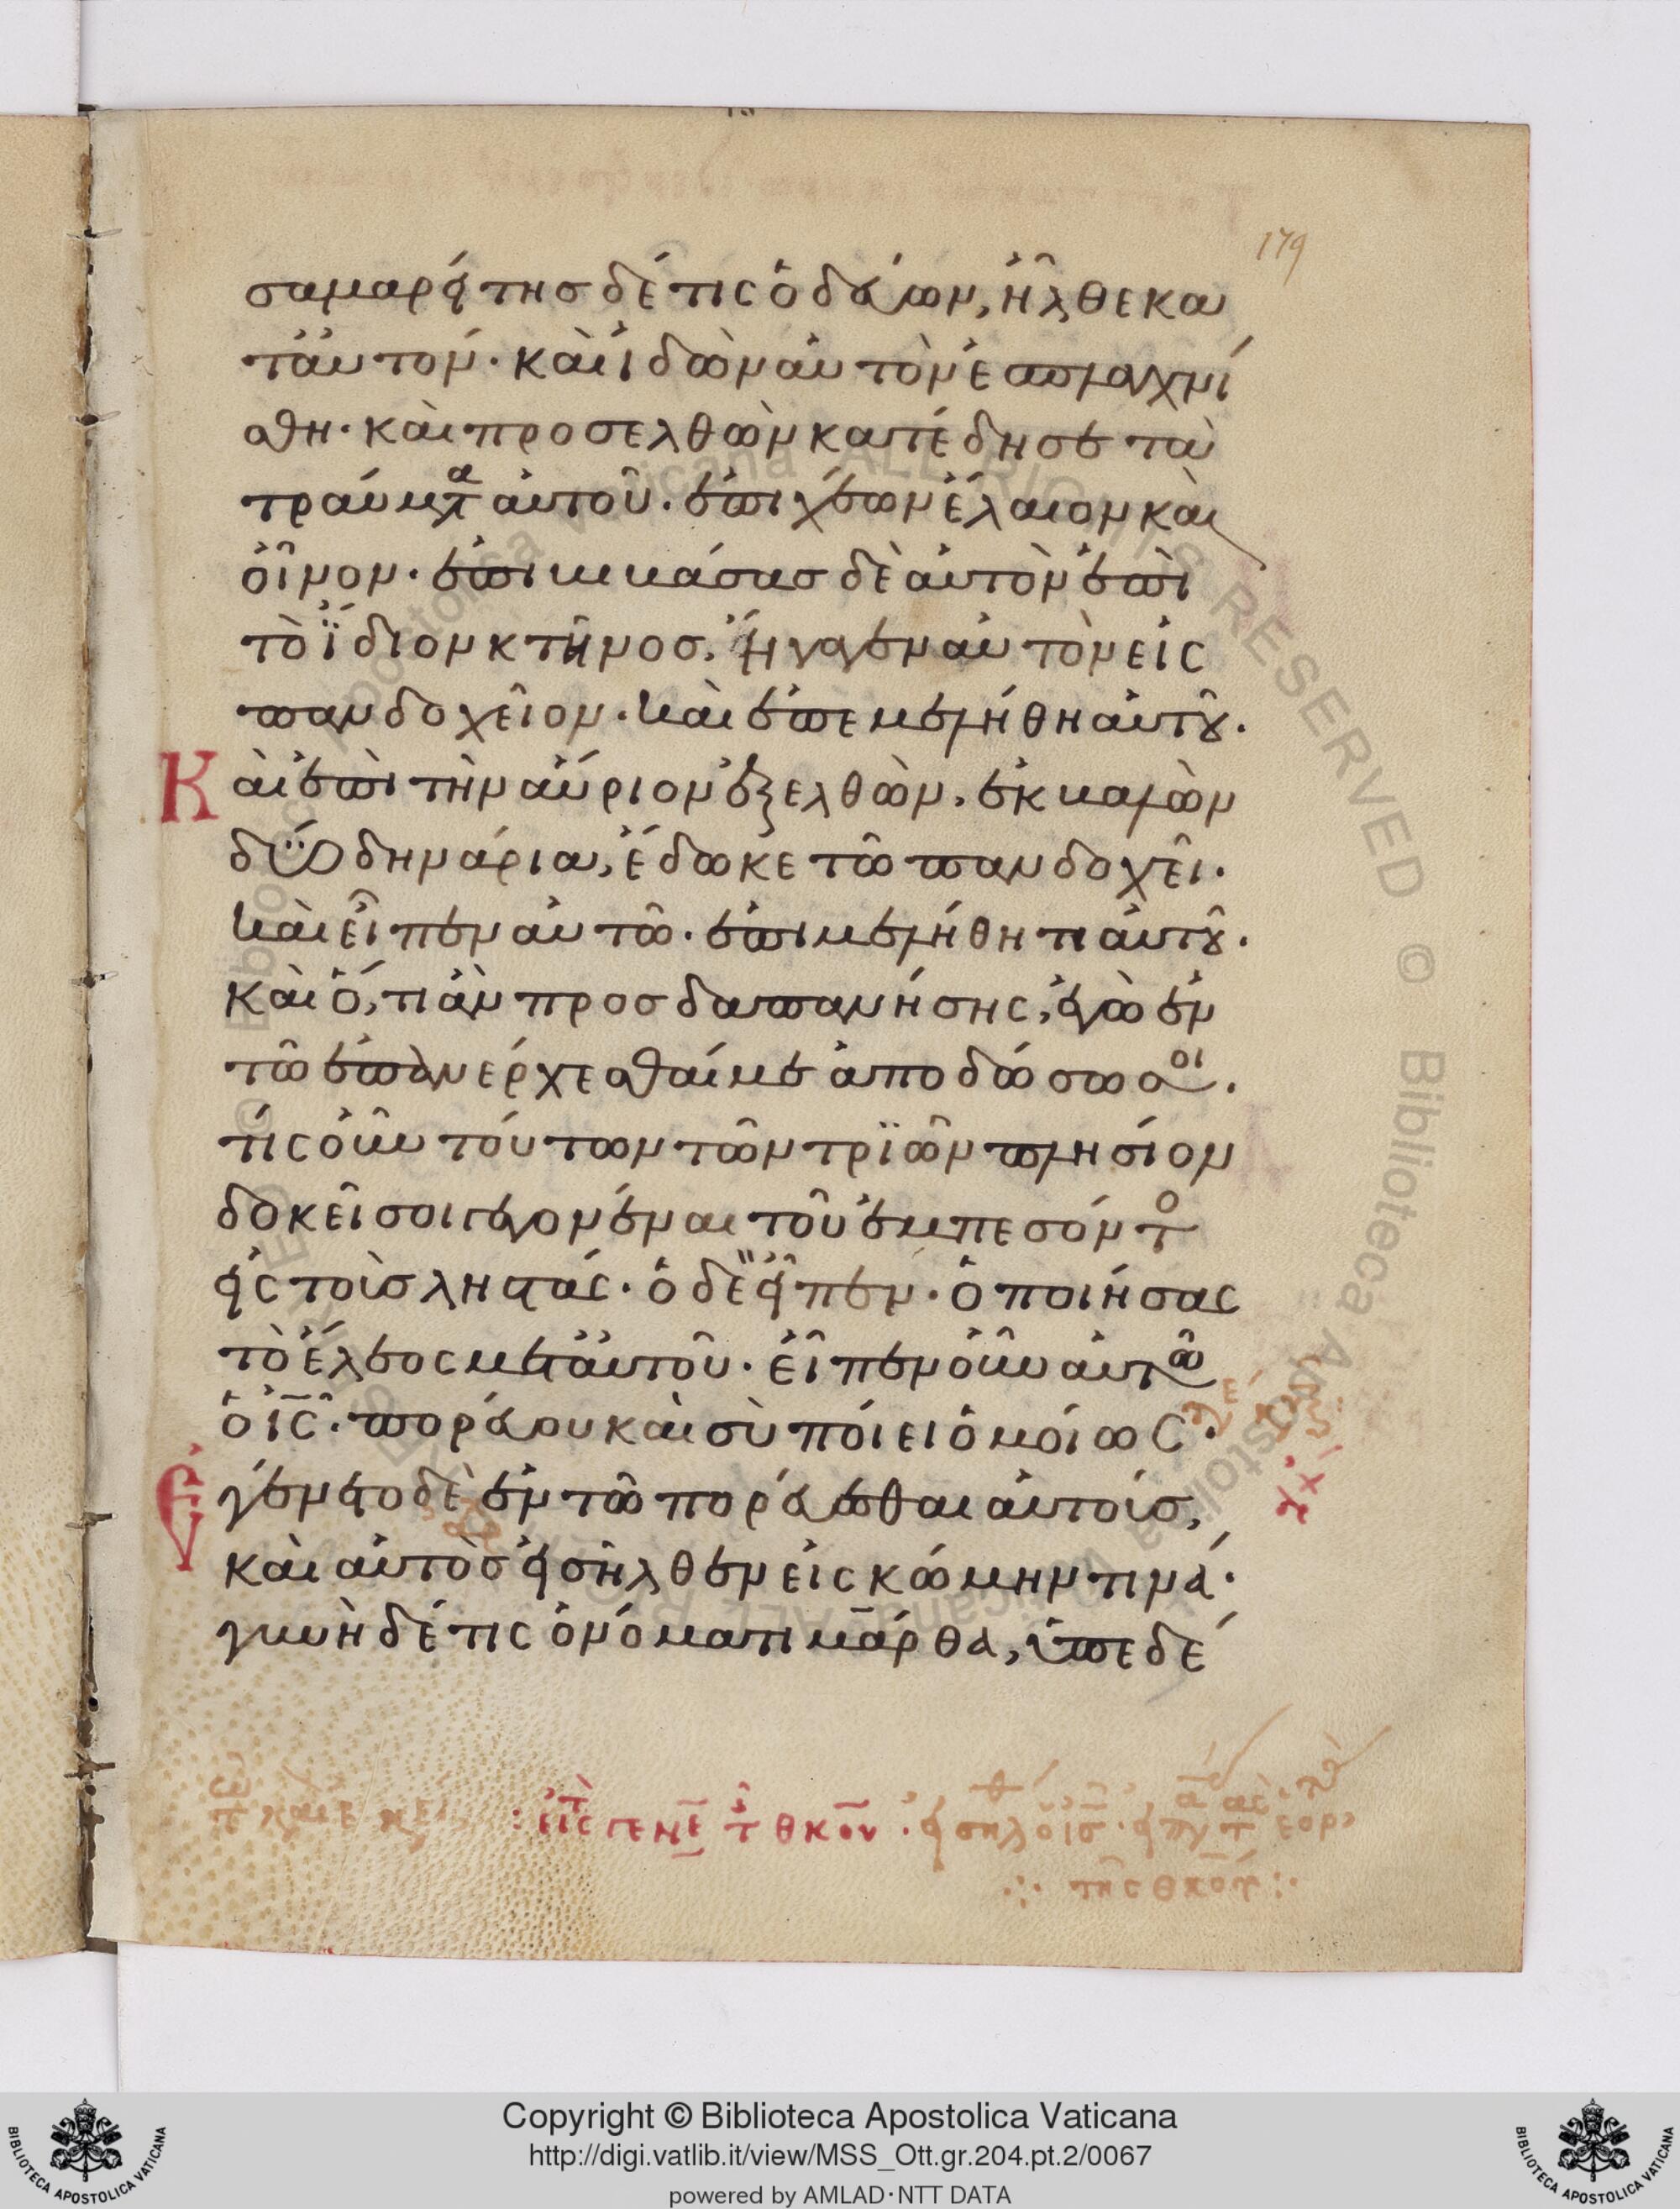 179
σαμαρείτης δέ τις ὁδεύων, ἦλθε κα
τ᾿ αὐτόν· καὶ ἰδὼν αὐτὸν ἐσπλαγχνί
σθη· καὶ προσελθὼν κατέδησε τὰ
τραύματα αὐτοῦ· ἐπιχέων ἔλαιον καὶ
οἶνον· ἐπιβιβάσας δὲ αὐτὸν ἐπὶ
τὸ ἴδιον κτῆνος, ἤγαγεν αὐτὸν εἰς
πανδοχεῖον· καὶ ἐπεμελήθη αὐτοῦ.
Καὶ ἐπὶ τὴν αὔριον ἐξελθὼν, ἐκβαλὼν
δύο δηνάρια, ἔδωκε τῶ πανδοχεῖ·
καὶ εἶπεν αὐτῶ· ἐπιμελήθητι αὐτοῦ·
καὶ ὅ, τι ἂν προσδαπανήσης, ἐγὼ ἐν
τῶ ἐπανέρχεσθαί με ἀποδώσω σοι.
τίς οὖν τούτων τῶν τριῶν πλησίον
δοκεῖ σοι γεγονέναι τοῦ ἐμπεσόντο
εἰς τοὺς ληστάς· ὁ δὲ εἶπεν· ὁ ποιήσας
τὸ ἔλεος μετ᾿ αὐτοῦ· εἶπεν οὖν αὐτῶ
ὁ ις· πορεύου καὶ σὺ ποίει ὁμοίως·
Ἐγένετο δὲ ἐν τῶ πορεύεσθαι αὐτοὺς,
καὶ αὐτὸς εἰσῆλθεν εἰς κώμην τινά·
γυνὴ δέ τις ὀνόματι μάρθα, ὑπεδέ
Copyright © Biblioteca Apostolica Vaticana
http://digi.vatlib.it/view/MSS_Ott.gr.204.pt.2/0067
powered by AMLAD·NTT DATA
BIBLIOTECA APOSTOLICA VATICANA
BIBLIOTECA APOSTOLICA VATICANA